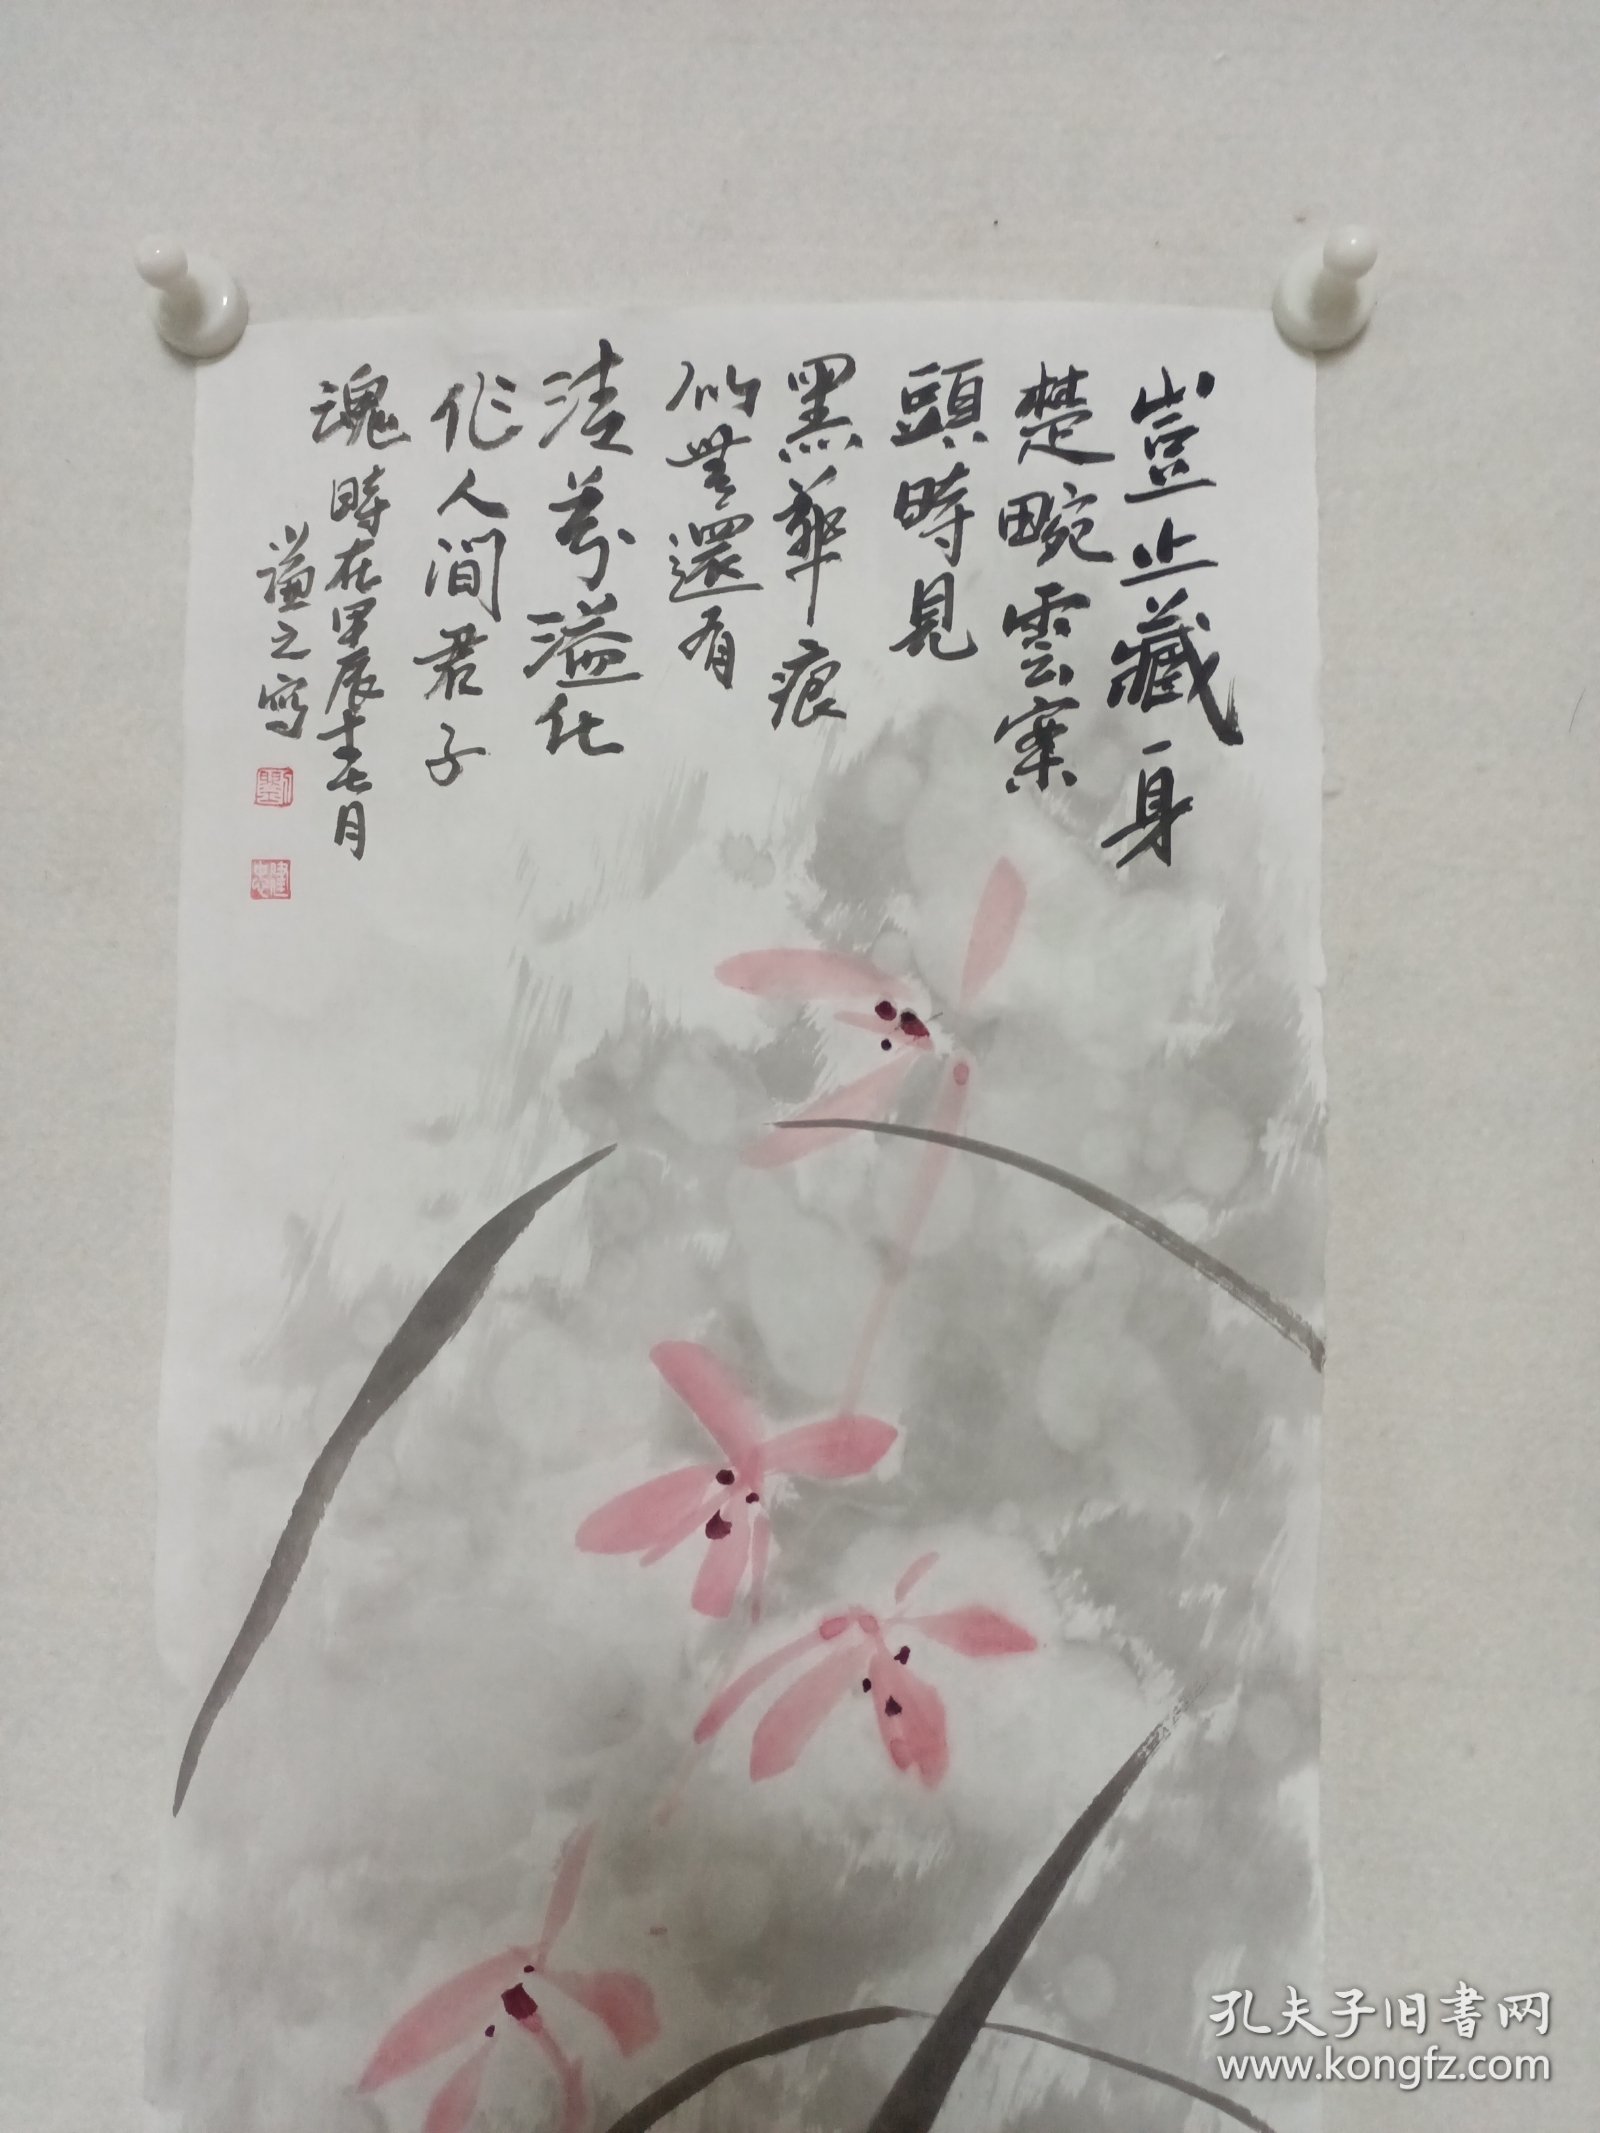 豈止藏身
楚畹雲案
頭時見
墨華痕
似無還有
清芬溢化
作人間君子
魂時在甲辰年七月
謙之寫
孔夫子旧書网
www.kongfz.com